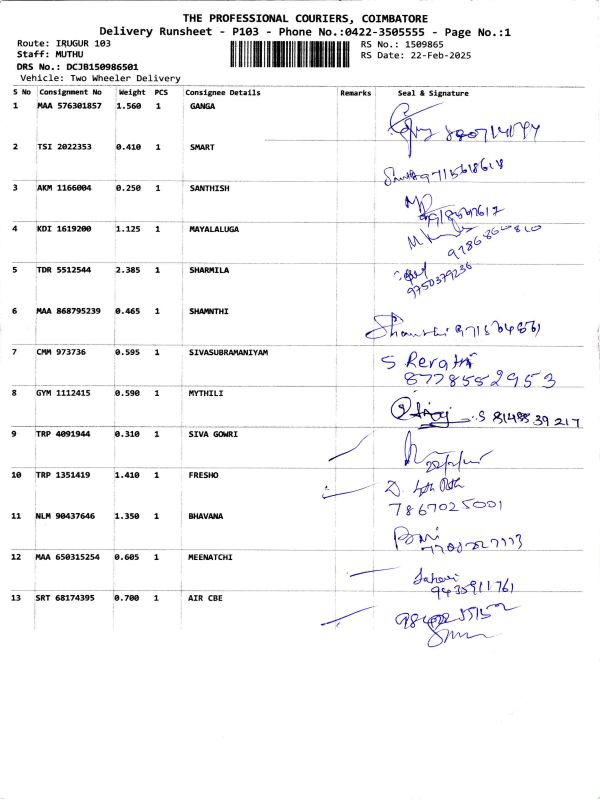 THE PROFESSIONAL COURIERS, COIMBATORE
Delivery Runsheet - P103 - Phone No.:0422-3505555 - Page No.:1
Route: IRUGUR 103 RS No.: 1509865
Staff: MUTHU RS Date: 22-Feb-2025
DRS No.: DCJB150986501
Vehicle: Two Wheeler Delivery
S No Consignment No Weight PCS Consignee Details Remarks Seal & Signature
1 MAA 576301857 1.560 1 GANGA
2 TSI 2022353 0.410 1 SMART
3 AKM 1166004 0.250 1 SANTHISH
4 KDI 1619200 1.125 1 MAYALALUGA
5 TDR 5512544 2.385 1 SHARMILA
9750379236
6 MAA 868795239 0.465 1 SHAMNTHI
7 CMM 973736 0.595 1 SIVASUBRAMANIYAM S Revathi
8778552953
8 GYM 1112415 0.590 1 MYTHILI
S 81485 39 217
9 TRP 4091944 0.310 1 SIVA GOWRI
10 TRP 1351419 1.410 1 FRESHO
7867025001
11 NLM 90437646 1.350 1 BHAVANA
12 MAA 650315254 0.605 1 MEENATCHI
9435911761
13 SRT 68174395 0.700 1 AIR CBE